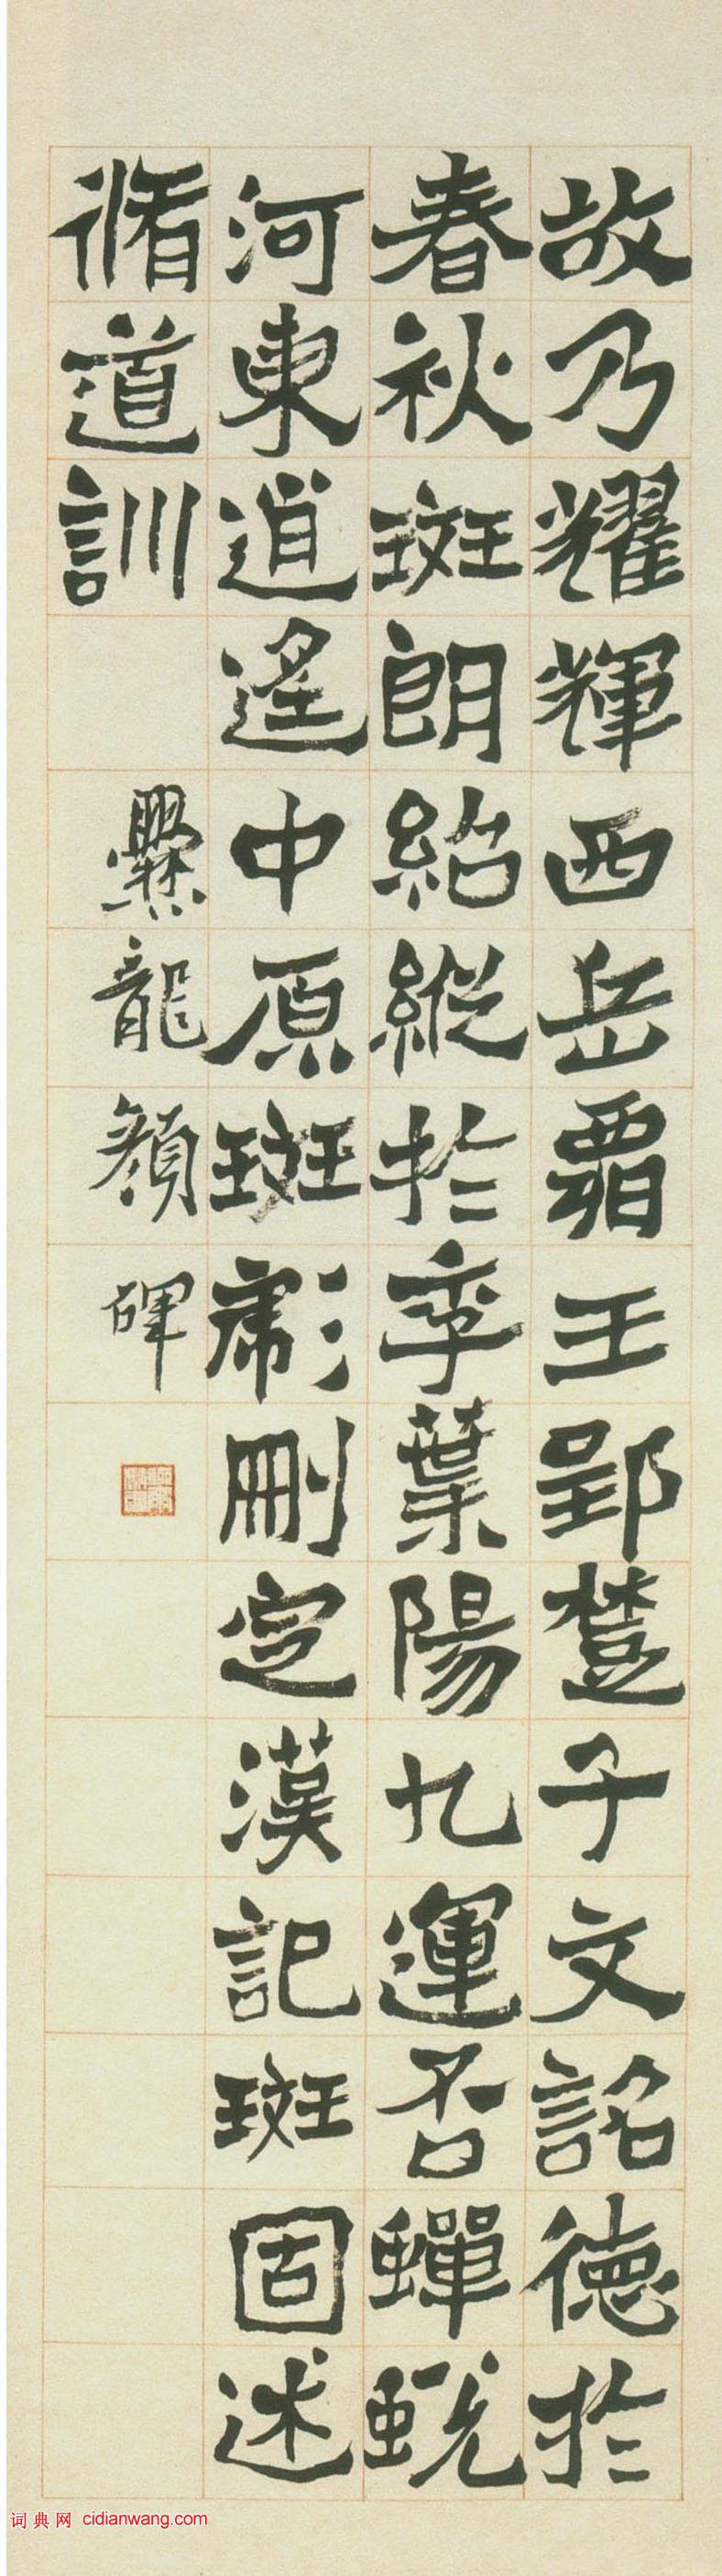 故乃耀輝西岳覇王郢楚子文詺德於
春秋斑朗紹縱於季葉陽九運否蟬蛻
河東逍遙中原斑彪刪定漢記斑固述
脩道訓
爨龍顏碑
词典网 cidianwang.com